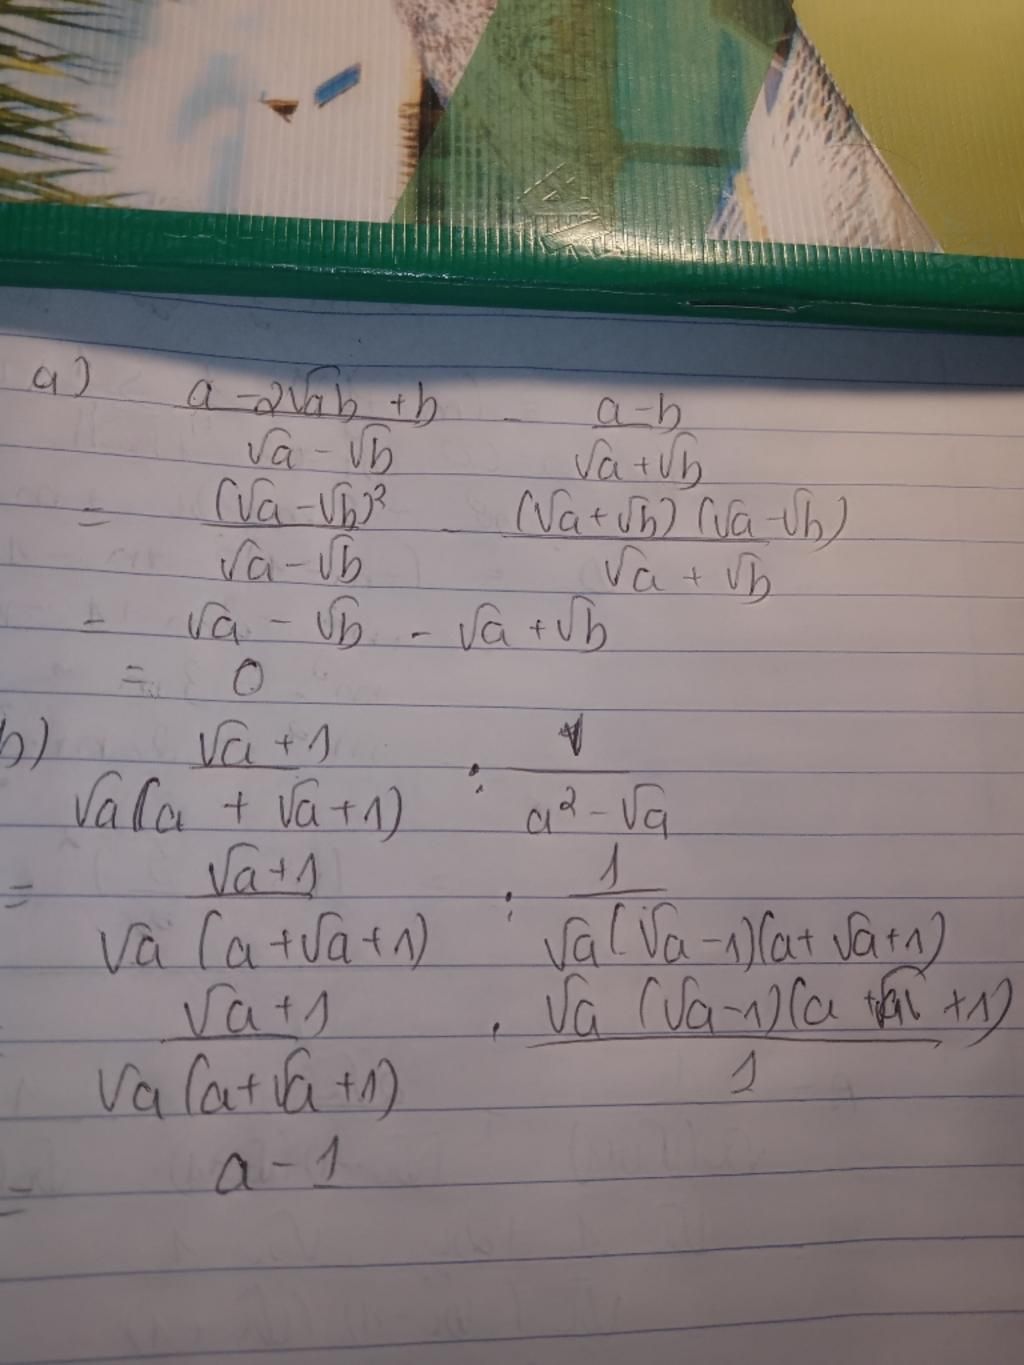 a) (a - 2√ab + b)/(√a - √b) - (a - b)/(√a + √b)
= (√a - √b)²/(√a - √b) - (√a + √b)(√a - √b)/(√a + √b)
= √a - √b - √a + √b
= 0
b) (√a + 1)/(√a(a + √a + 1)) : 1/(a² - √a)
= (√a + 1)/(√a(a + √a + 1)) : 1/(√a(√a - 1)(a + √a + 1))
(√a + 1)/(√a(a + √a + 1)) . √a(√a - 1)(a + √a + 1)/1
= a - 1